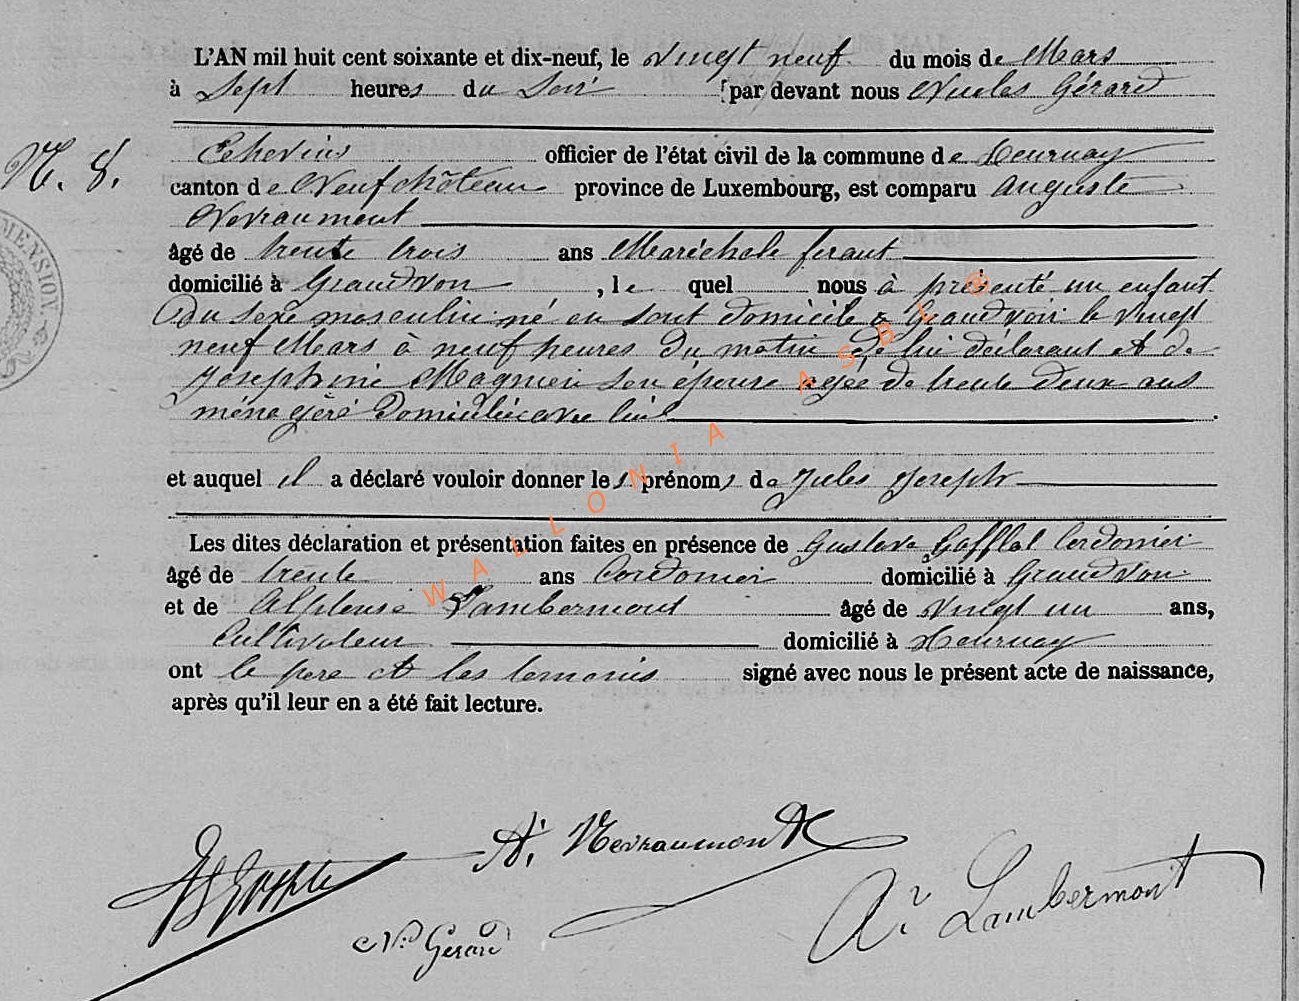 L'AN mil huit cent soixante et dix-neuf, le vingt neuf du mois de Mars
à Sept heures du Soir par devant nous Nicolas Gérard
N. 8.
Echevin officier de l'état civil de la commune de Tournay
canton de Neufchâteau province de Luxembourg, est comparu Auguste
Nevraumont
âgé de trente trois ans Maréchale feraut
domicilié à Grandvoir, le quel nous à présenté un enfant
du sexe masculin né en sont domicile a Grandvoir le vingt
neuf Mars à neuf heures du matin de lui déclarant et de
Josephine Magnien son épouse agée de trente deux ans
ménagère domicilié avec lui
et auquel il a déclaré vouloir donner les prénoms de Jules Joseph
Les dites déclaration et présentation faites en présence de Gustave Cordonier
âgé de trente ans Cordonier domicilié à Grandvoir
et de Alphonse Lambermont âgé de vingt un ans,
Cultivateur domicilié à Tournay
ont le pere et les temonis signé avec nous le présent acte de naissance,
après qu'il leur en a été fait lecture.
A. Nevraumont
N. Gerard
A. Lambermont
MENSION
WALLONIA ASBL ©